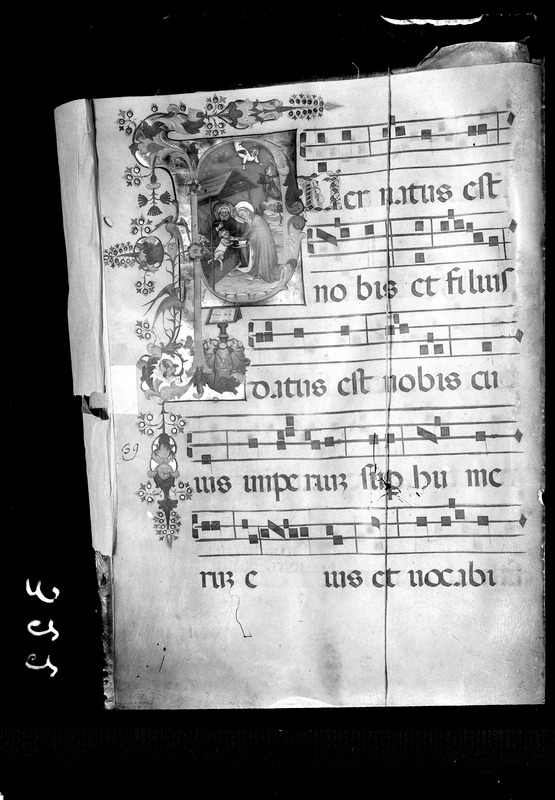 Uer natus est
no bis et filius
datus est nobis cu
ius impe rium sup hu me
rum e ius et uocabi
39
322